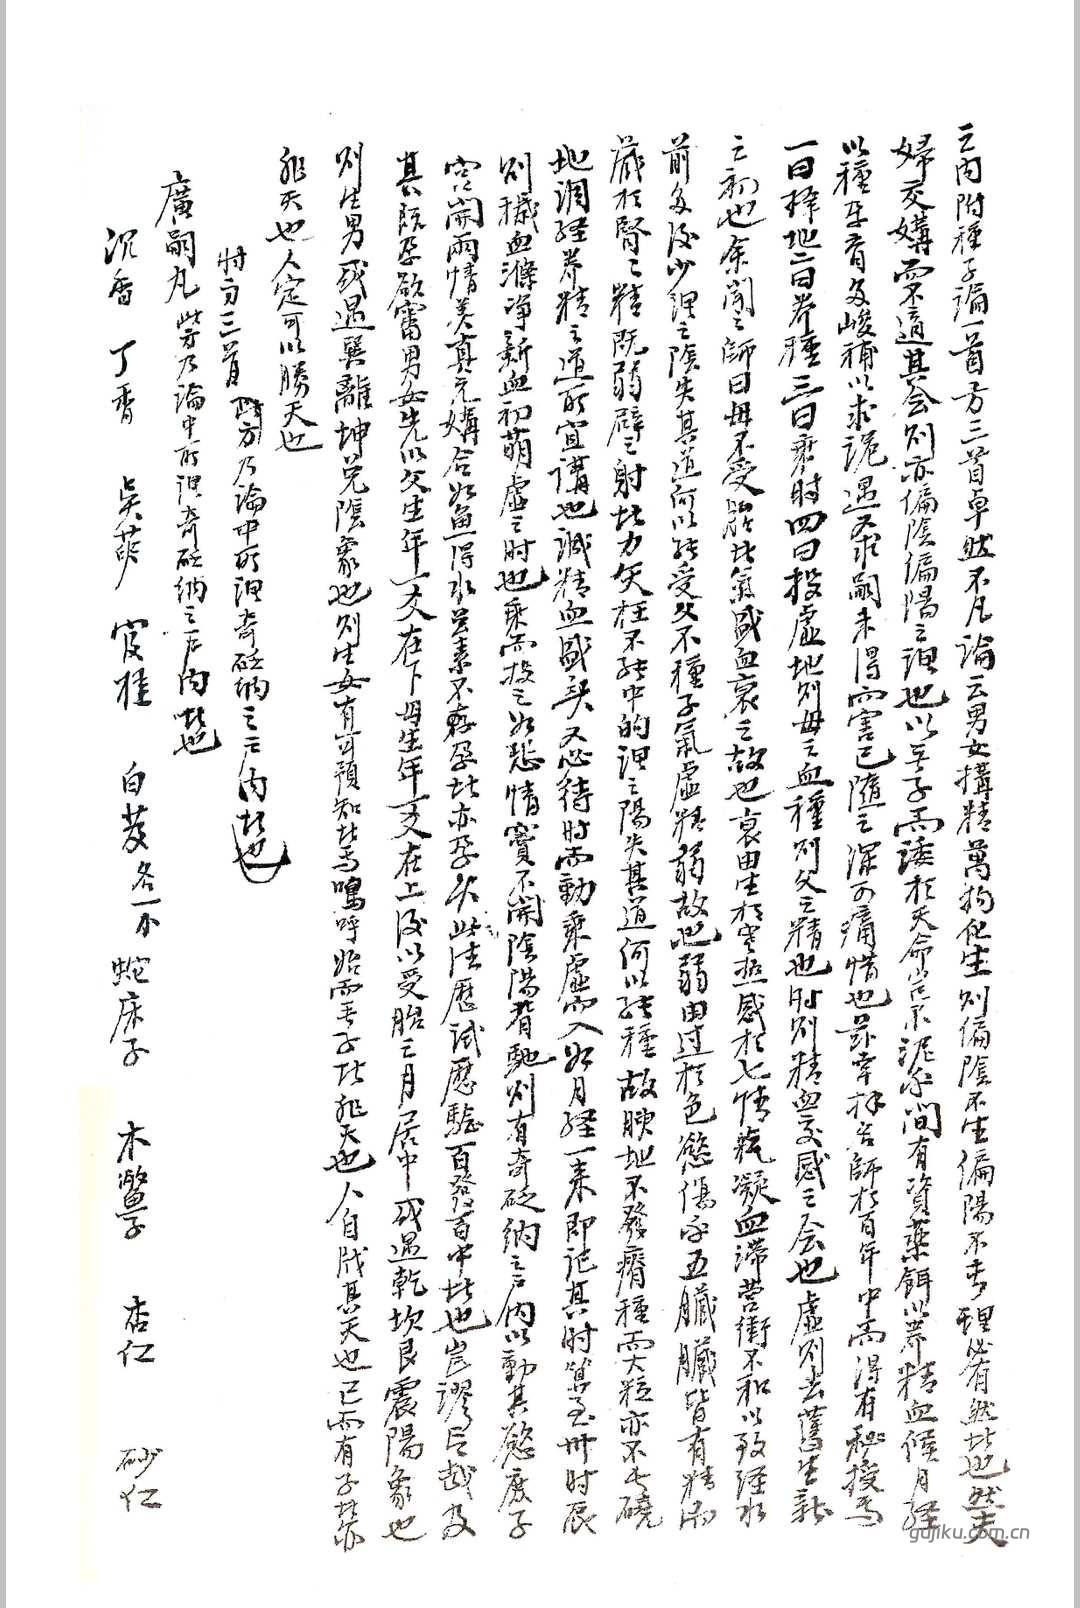 之內附種子論一首方三首卓然不凡論云男女搆精萬物化生則偏陰不生偏陽不長理必有然者也然夫
婦交媾而不適其會則亦偏陰偏陽之謂也以無子而諉於天命豈不泥乎間有資藥餌以養精血候月經
以種孕育多峻補以求詭遇又求嗣未得而害已隨之深可痛惜也
一曰擇地二曰養種三曰乘時四曰投虛地則母之血種則父之精也時則精血交感之會也虛則去舊生新
之初也余聞之師曰母不受胎者氣盛血衰之故也衰由生於寒熱感於七情氣凝血滯營衛不和以致經水
前多後少謂之陰失其道何以能受父不種子氣虛精弱故也弱由過於色慾傷乎五臟臟皆有精而
藏於腎腎精既弱辟之射者力矢枉不能中的謂之陽失其道何以能種故腴地不發瘠種而大粒亦不長磽
地調經養精之道所宜講也誠精血盛矣又必待時而動乘虛而入如月經一來即記其時算至卅時辰
則穢血滌淨新血初萌虛之時也乘而投之如悲情竇不開陰陽背馳則有奇砭納之戶內以動其慾庶子
宮開兩情美真元媾合如魚得水並素不孕者亦孕矣此法歷試歷驗百發百中者也豈謬云哉及
其既孕欲審男女先以父生年一爻在下母生年一爻在上後以受胎之月居中或遇乾坎艮震陽象也
則生男或遇巽離坤兌陰象也則生女有直可預知者焉嗚呼始而無子者非天也人自戕其天也已而有子者亦
非天也人定可以勝天也
附方三首 附方乃論中所謂奇砭納之戶內者也
廣嗣丸 此方乃論中所謂奇砭納之戶內者也
沉香 丁香 吳萸 官桂 白芨各一个 蛇床子 木鱉子 杏仁 砂仁
gujiku.com.cn